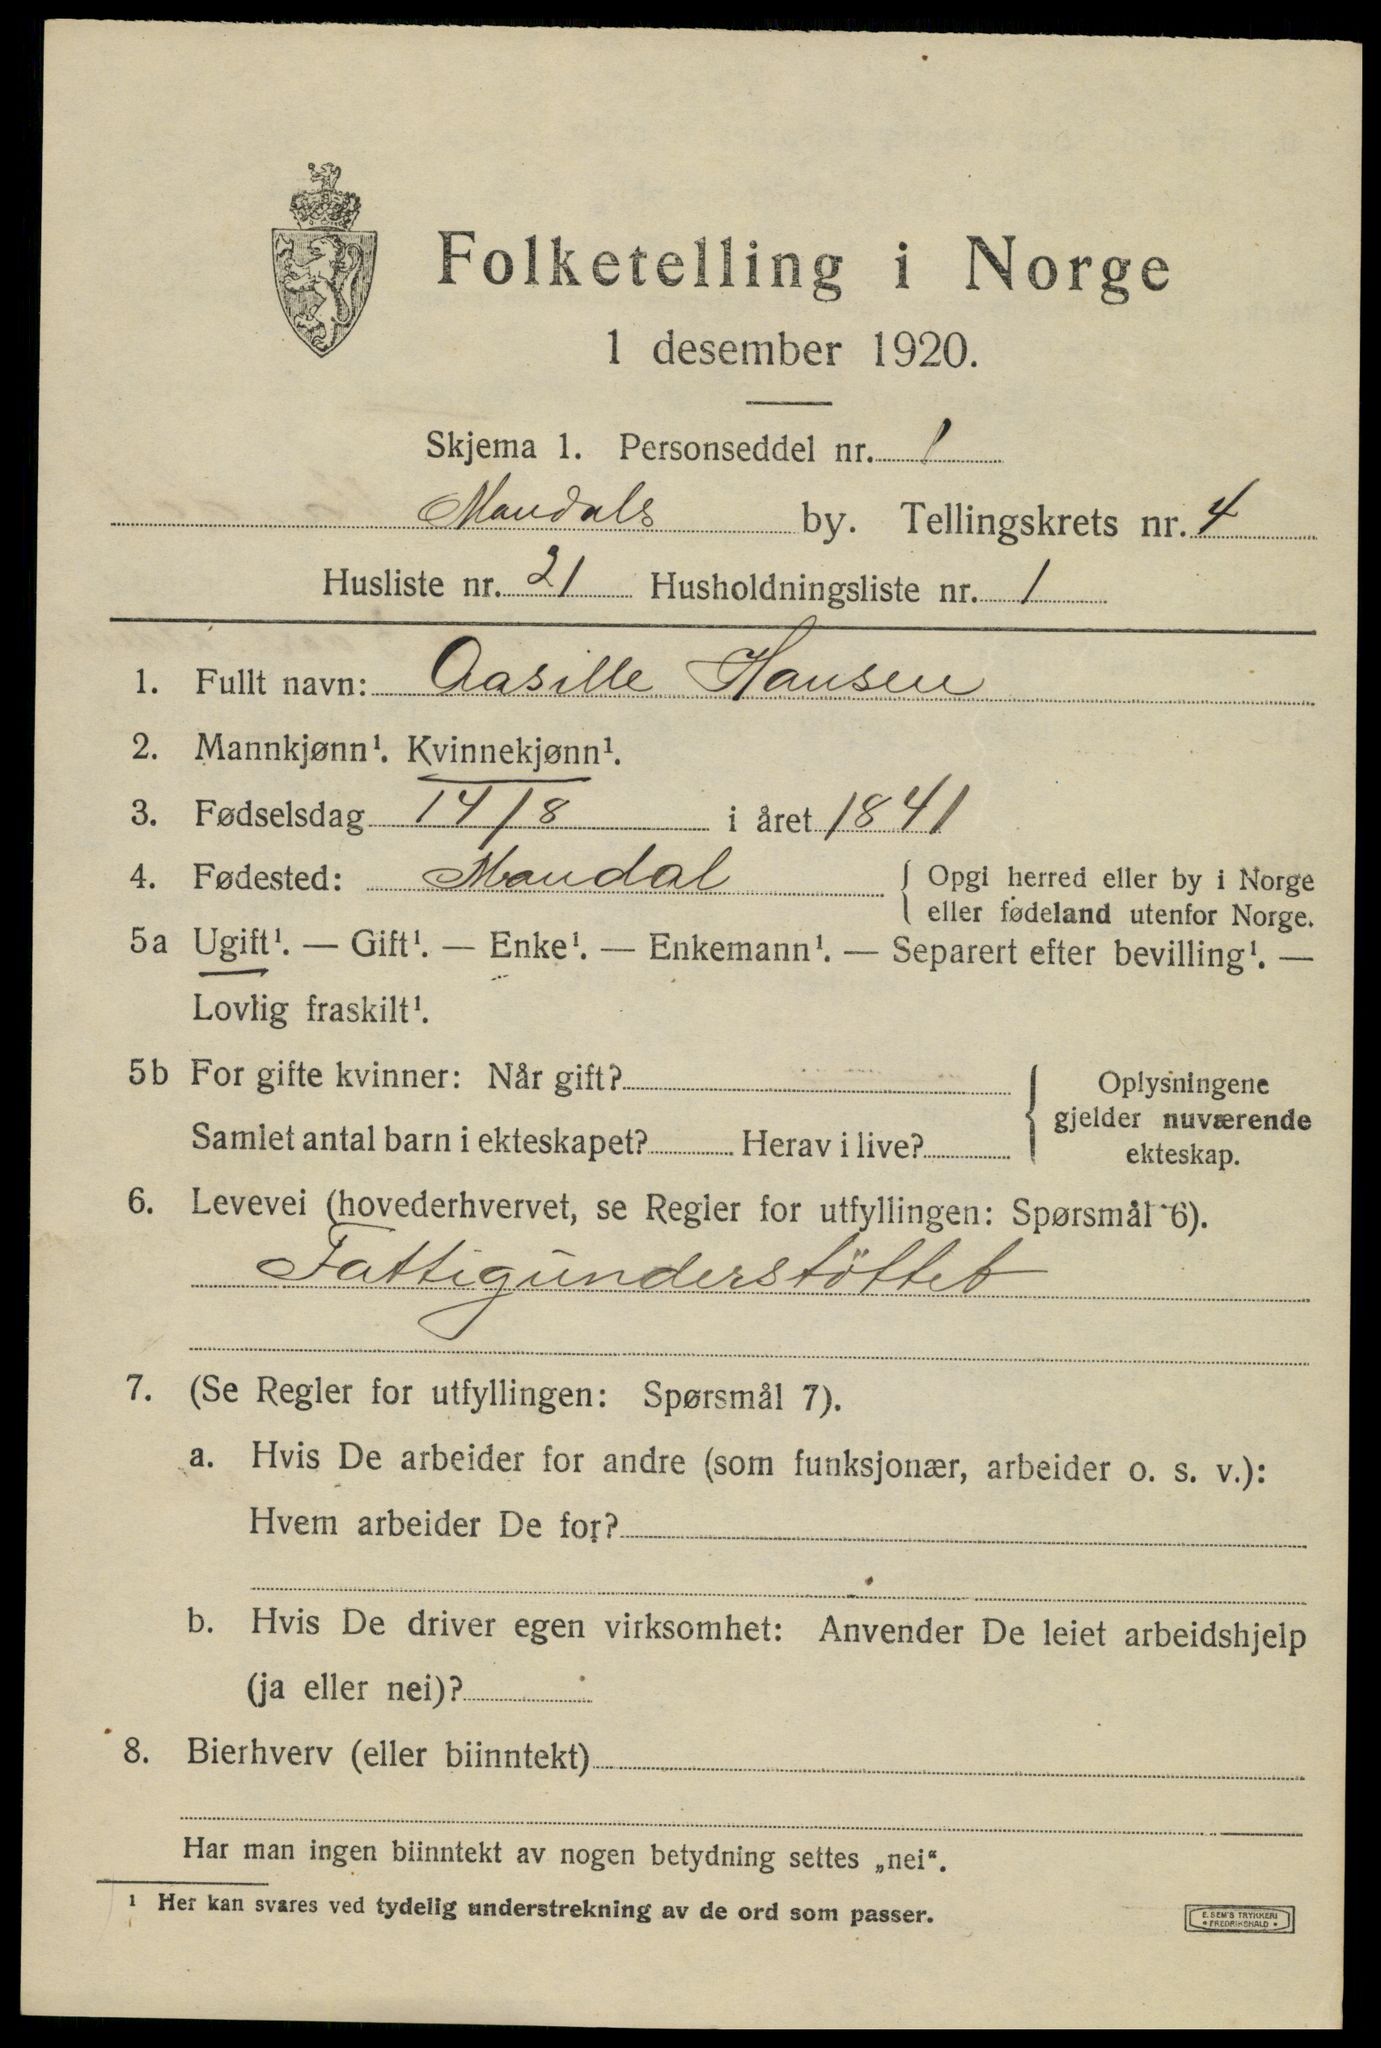 Folketelling i Norge
1 desember 1920.
Skjema 1. Personseddel nr. 1
Mandals by. Tellingskrets nr. 4
Husliste nr. 21 Husholdningsliste nr. 1
1. Fullt navn: Aasille Hansen
2. Mannkjønn¹. Kvinnekjønn¹.
3. Fødselsdag 14/8 i året 1841
4. Fødested: Mandal { Opgi herred eller by i Norge
eller fødeland utenfor Norge.
5a Ugift¹. — Gift¹. — Enke¹. — Enkemann¹. — Separert efter bevilling¹. —
Lovlig fraskilt¹.
5b For gifte kvinner: Når gift?
Samlet antal barn i ekteskapet? Herav i live?
Oplysningene
gjelder nuværende
ekteskap.
6. Levevei (hovederhvervet, se Regler for utfyllingen: Spørsmål 6).
Fattigunderstöttet
7. (Se Regler for utfyllingen: Spørsmål 7).
a. Hvis De arbeider for andre (som funksjonær, arbeider o. s. v.):
Hvem arbeider De for?
b. Hvis De driver egen virksomhet: Anvender De leiet arbeidshjelp
(ja eller nei)?
8. Bierhverv (eller biinntekt)
Har man ingen biinntekt av nogen betydning settes „nei“.
¹ Her kan svares ved tydelig understrekning av de ord som passer.
E. SEM'S TRYKKERI
• FREDRIKSHALD •